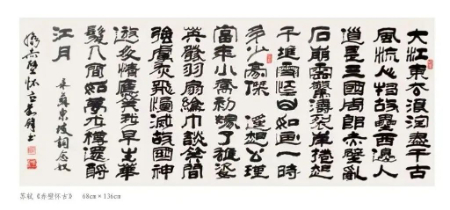 大江東去浪淘盡千古
風流人物故壘西邊人
道是三國周郎赤壁亂
石崩雲驚濤裂岸捲起
千堆雪江山如畫一時
多少豪傑 遙想公瑾
當年小喬初嫁了雄姿
英發羽扇綸巾談笑間
強虜灰飛煙滅故國神
遊多情應笑我早生華
髮人間如夢一樽還酹
江月
東坡詞念奴
嬌赤壁懷古
苏轼《赤壁怀古》 68cm×136cm